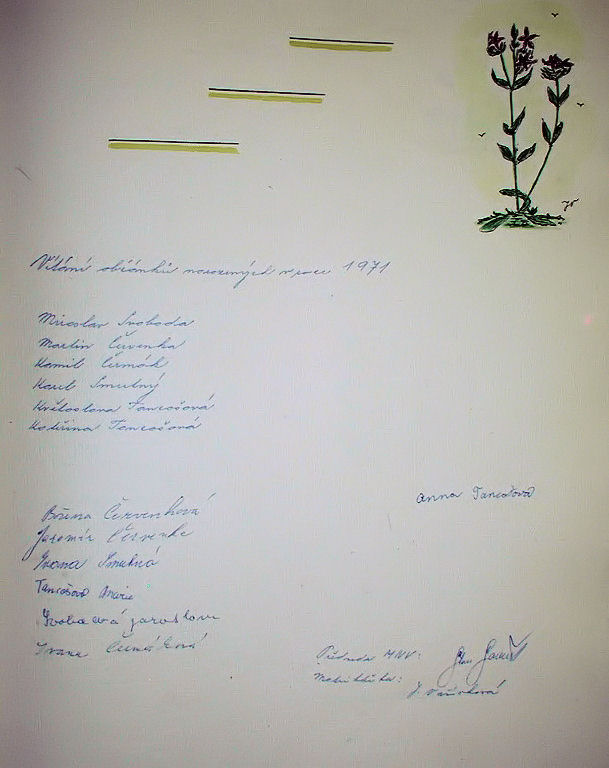 Vítání občánků narozených v roce 1971
Miroslav Svoboda
Martin Červenka
Kamil Čermák
Karel Smutný
Květoslava Tancošová
Kateřina Tancošová
Anna Tancošová
Božena Červenková
Jaromír Červenka
Ivana Smutná
Tancošová Marie
Svobodová Jaroslava
Ivana Čermáková
Předseda MNV:
Matrikářka: